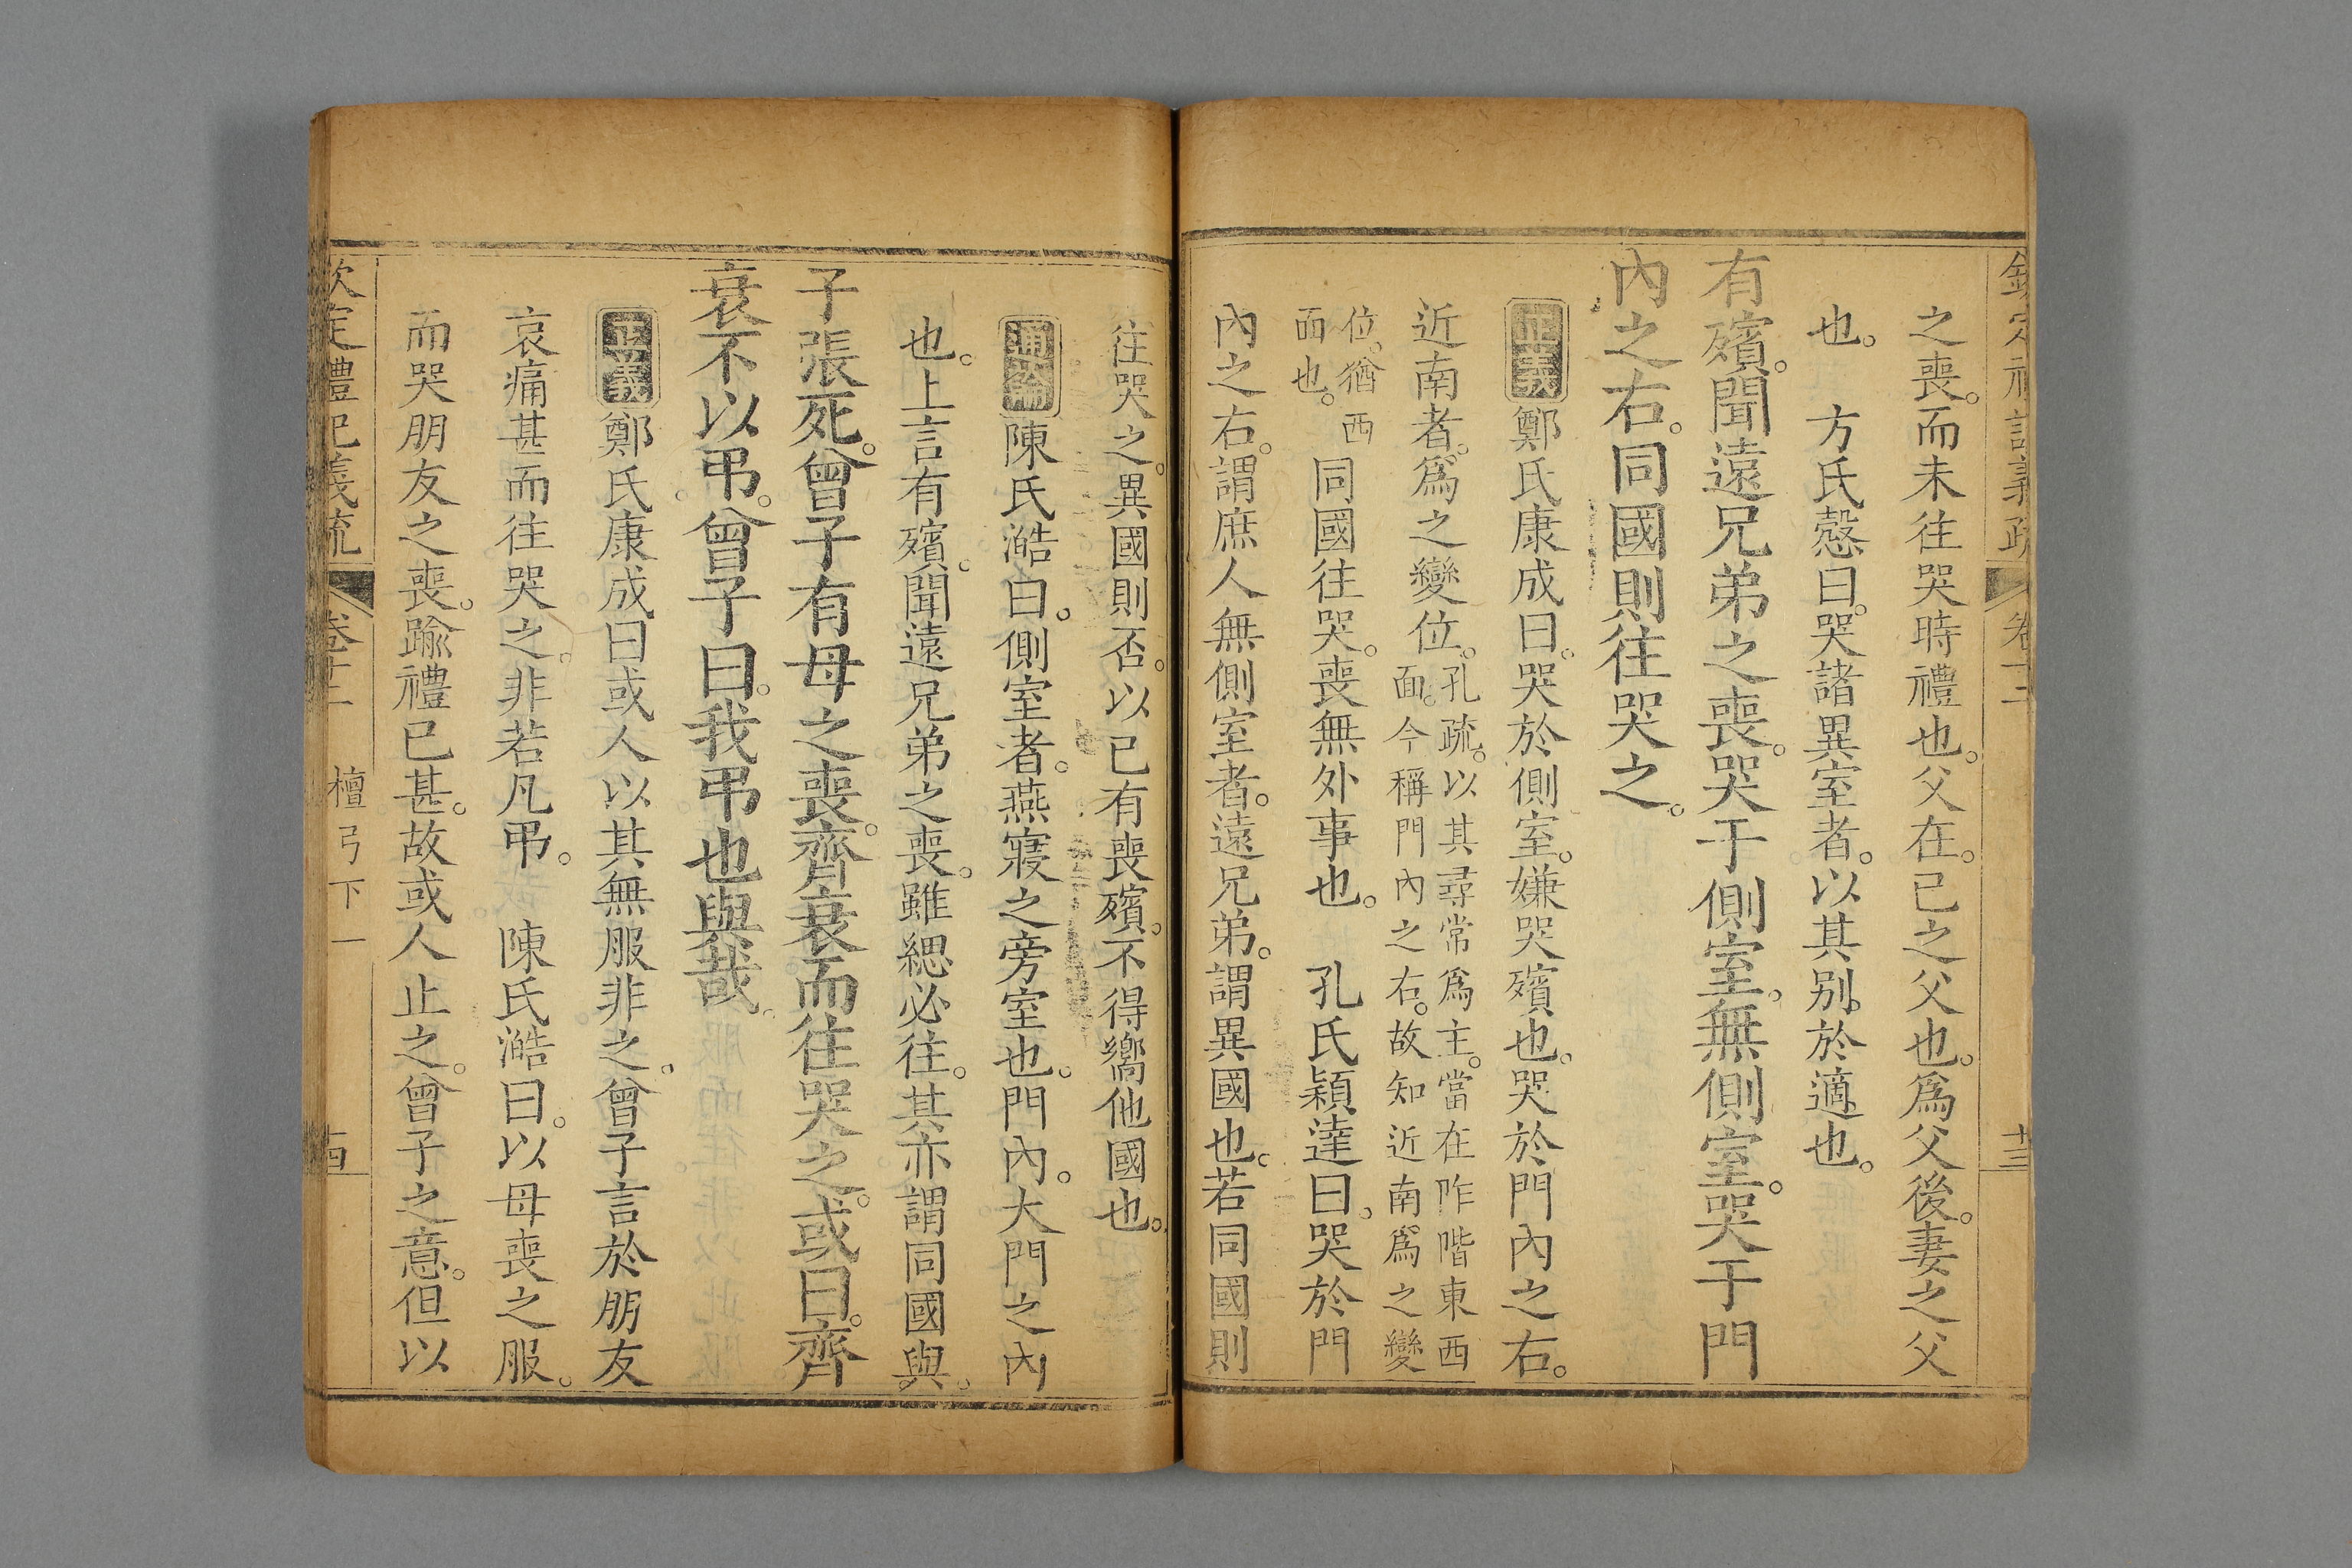 欽定禮記義疏 卷十二 十三
之喪。而未往哭時禮也。父在。己之父也。爲父後。妻之父
也。 方氏慤曰。哭諸異室者。以其别於適也。
有殯。聞遠兄弟之喪。哭于側室。無側室。哭于門
內之右。同國則往哭之。
正義 鄭氏康成曰。哭於側室。嫌哭殯也。哭於門內之右。
近南者。爲之變位。孔疏。以其尋常爲主。當在阼階東西
面。今稱門內之右。故知近南爲之變
位。猶西
面也。 同國往哭。喪無外事也。 孔氏穎達曰。哭於門
內之右。謂庶人無側室者。遠兄弟。謂異國也。若同國則
往哭之。異國則否。以己有喪殯。不得嚮他國也。
通論 陳氏澔曰。側室者。燕寢之旁室也。門內。大門之內
也。上言有殯。聞遠兄弟之喪。雖緦必往。其亦謂同國與。
子張死。曾子有母之喪。齊衰而往哭之。或曰。齊
衰不以弔。曾子曰。我弔也與哉。
正義 鄭氏康成曰或人以其無服非之。曾子言於朋友
哀痛甚而往哭之。非若凡弔。 陳氏澔曰。以母喪之服。
而哭朋友之喪。踰禮已甚。故或人止之。曾子之意。但以
欽定禮記義疏 卷十二 檀弓下一 十四